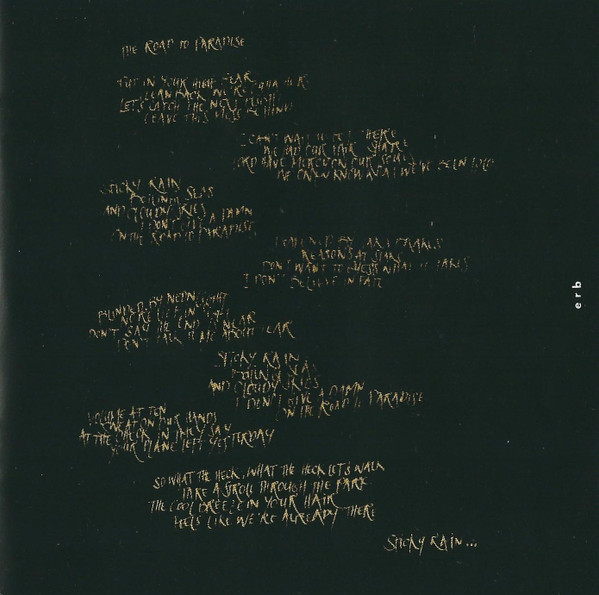 THE ROAD TO PARADISE
PUT IN YOUR HIGH GEAR
LEAN BACK WE'RE HERE
LET'S CATCH THE NEXT
LEAVE THIS BEHIND
I CAN'T WAIT TO GET THERE
WE HAD OUR FAIR SHARE
LORD HAVE MERCY ON OUR SOULS
WE ONLY KNOW WHAT WE'VE BEEN TOLD
STICKY RAIN
BOILING SEAS
AND CLOUDY SKIES
I DON'T GIVE A DAMN
ON THE ROAD TO PARADISE
BY
REASONS AT
DON'T WANT TO GUESS WHAT IT TAKES
I DON'T BELIEVE IN FATE
BLINDED BY NEON LIGHT
NO RELIEF IN SIGHT
DON'T SAY THE END IS NEAR
DON'T TALK TO ME ABOUT FEAR
STICKY RAIN
BOILING SEAS
AND CLOUDY SKIES
I DON'T GIVE A DAMN
ON THE ROAD TO PARADISE
VOLUME AT TEN
SWEAT ON OUR HANDS
AT THE CHECK IN THEY SAY
YOUR PLANE LEFT YESTERDAY
SO WHAT THE HECK, WHAT THE HECK LET'S WALK
TAKE A STROLL THROUGH THE PARK
THE COOL BREEZE IN YOUR HAIR
FEELS LIKE WE'RE ALREADY THERE
STICKY RAIN...
erb